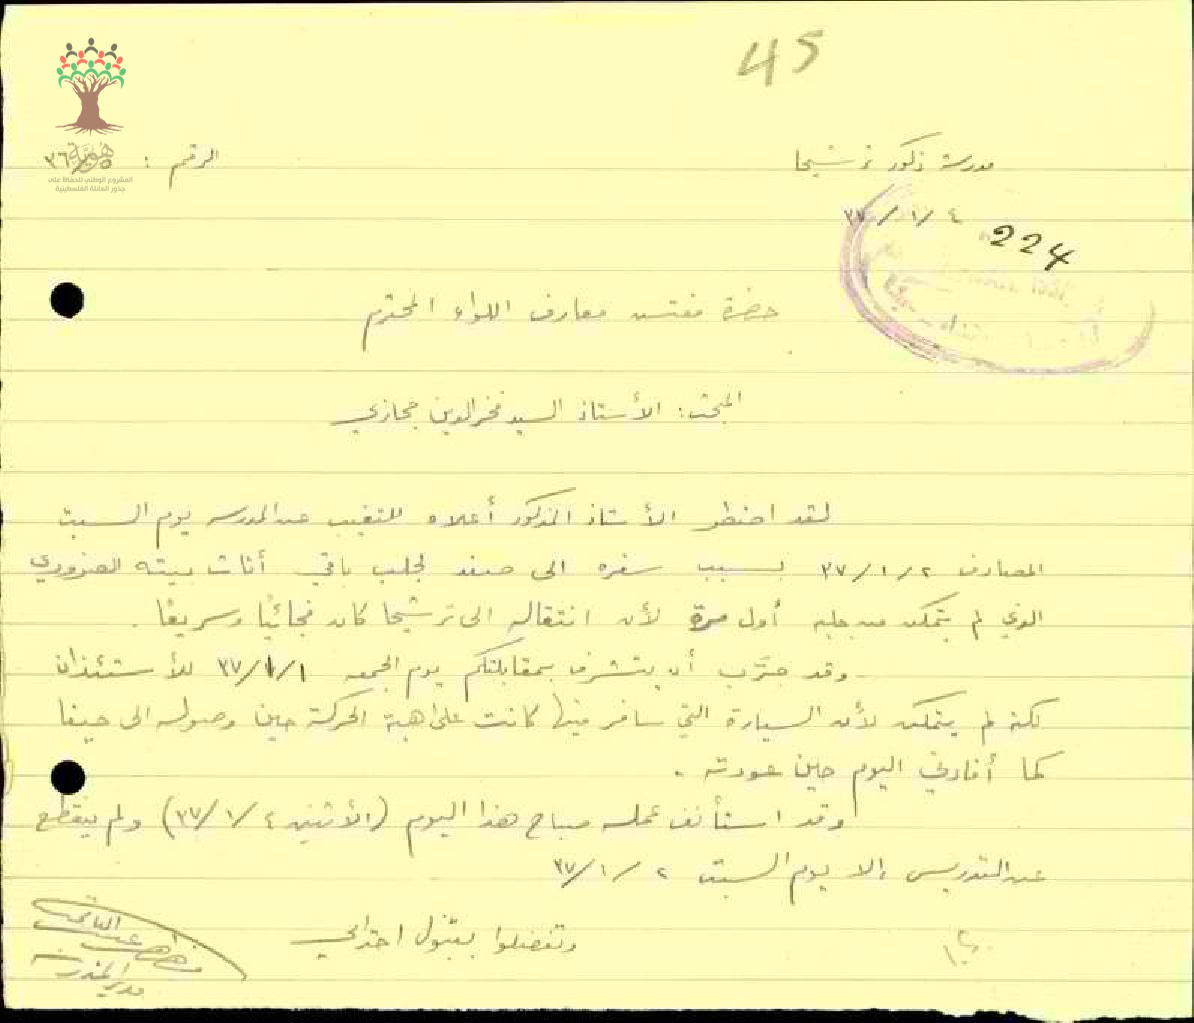 45
مدرسة ذكور ترشيحا
الرقم : ٣٦/٥
هوية
المشروع الوطني للحفاظ على
جذور العائلة الفلسطينية
٣٧/١/٤
224
حضرة مفتش معارف اللواء المحترم
المبحث: الأستاذ السيد فخرالدين حجازي
لقد اضطر الأستاذ المذكور أعلاه للتغيب عن المدرسه يوم السبت
المصادف ٣٧/١/٢ بسبب سفره الى صفد لجلب باقي أثاث بيته الضروري
الذي لم يتمكن من جلبه أول مرة لأن انتقاله الى ترشيحا كان فجائيًا وسريعًا .
وقد جرّب أن يتشرف بمقابلتكم يوم الجمعه ٣٧/١/١ للأستئذان
لكنه لم يتمكن لأن السيارة التي سافر فيها كانت على اهبة الحركة حين وصوله الى حيفا
كما أفادني اليوم حين عودته .
وقد استأنف عمله صباح هذا اليوم (الأثنين ٣٧/١/٤) ولم ينقطع
عن التدريس إلا يوم السبت ٣٧/١/٢
وتفضلوا بقبول احترامي
مدير المدرسة